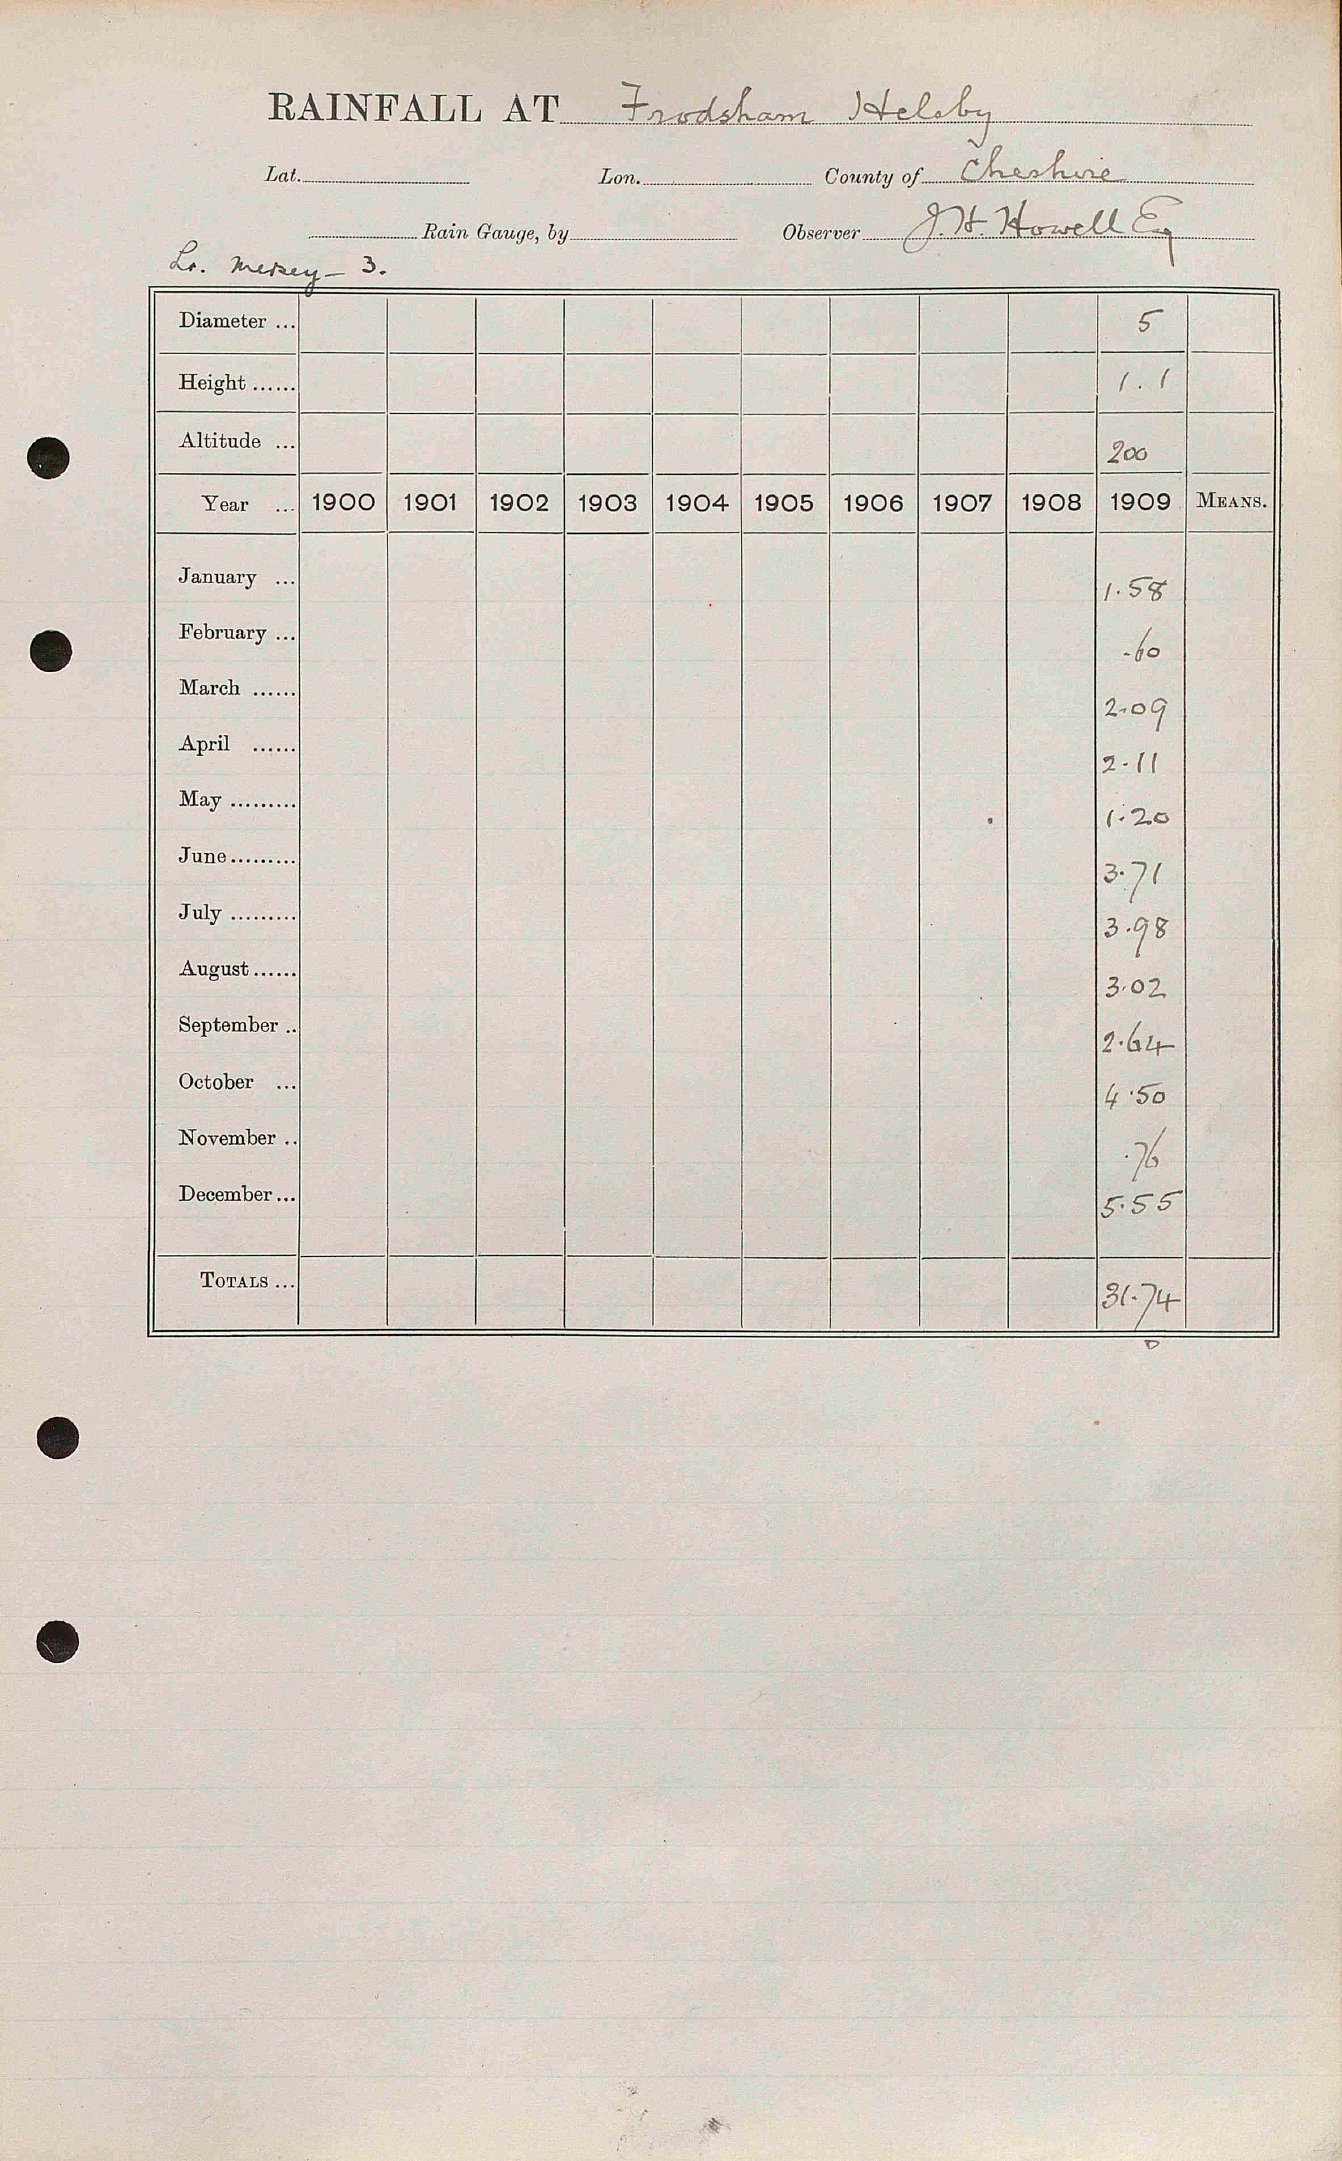 RAINFALL AT Frodsham Helsby
Lat. Lon. County of Cheshire
Rain Gauge, by Observer J. H. Howell Esq
Lr. Mersey – 3.
Diameter ... 5
Height ...... 1.1
Altitude ... 200
Year ... 1900 1901 1902 1903 1904 1905 1906 1907 1908 1909 MEANS.
January ... 1.58
February ... .60
March ...... 2.09
April ...... 2.11
May ......... 1.20
June ......... 3.71
July ......... 3.98
August ...... 3.02
September .. 2.64
October ... 4.50
November .. .76
December ... 5.55
TOTALS ... 31.74